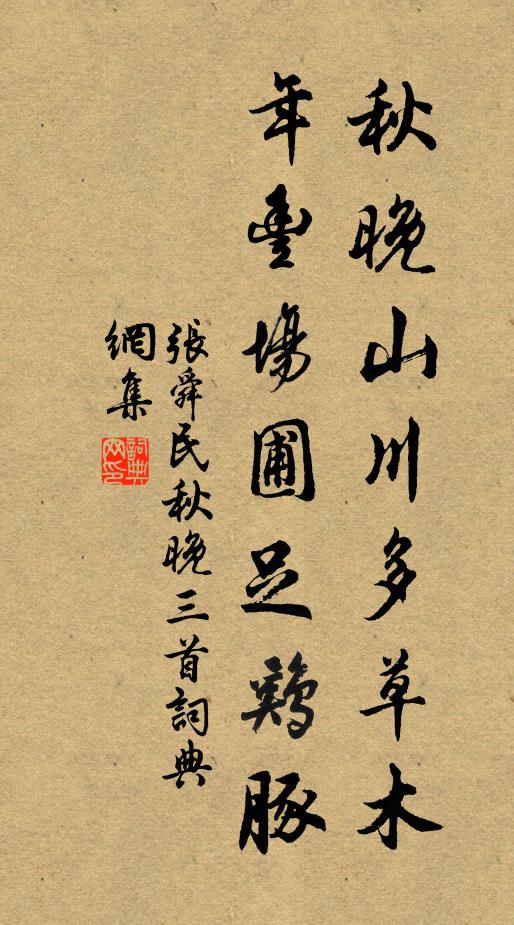 秋晚山川多草木
年豐場圃足鷄豚
張舜民秋晚三首詞典
網集
詞典網印